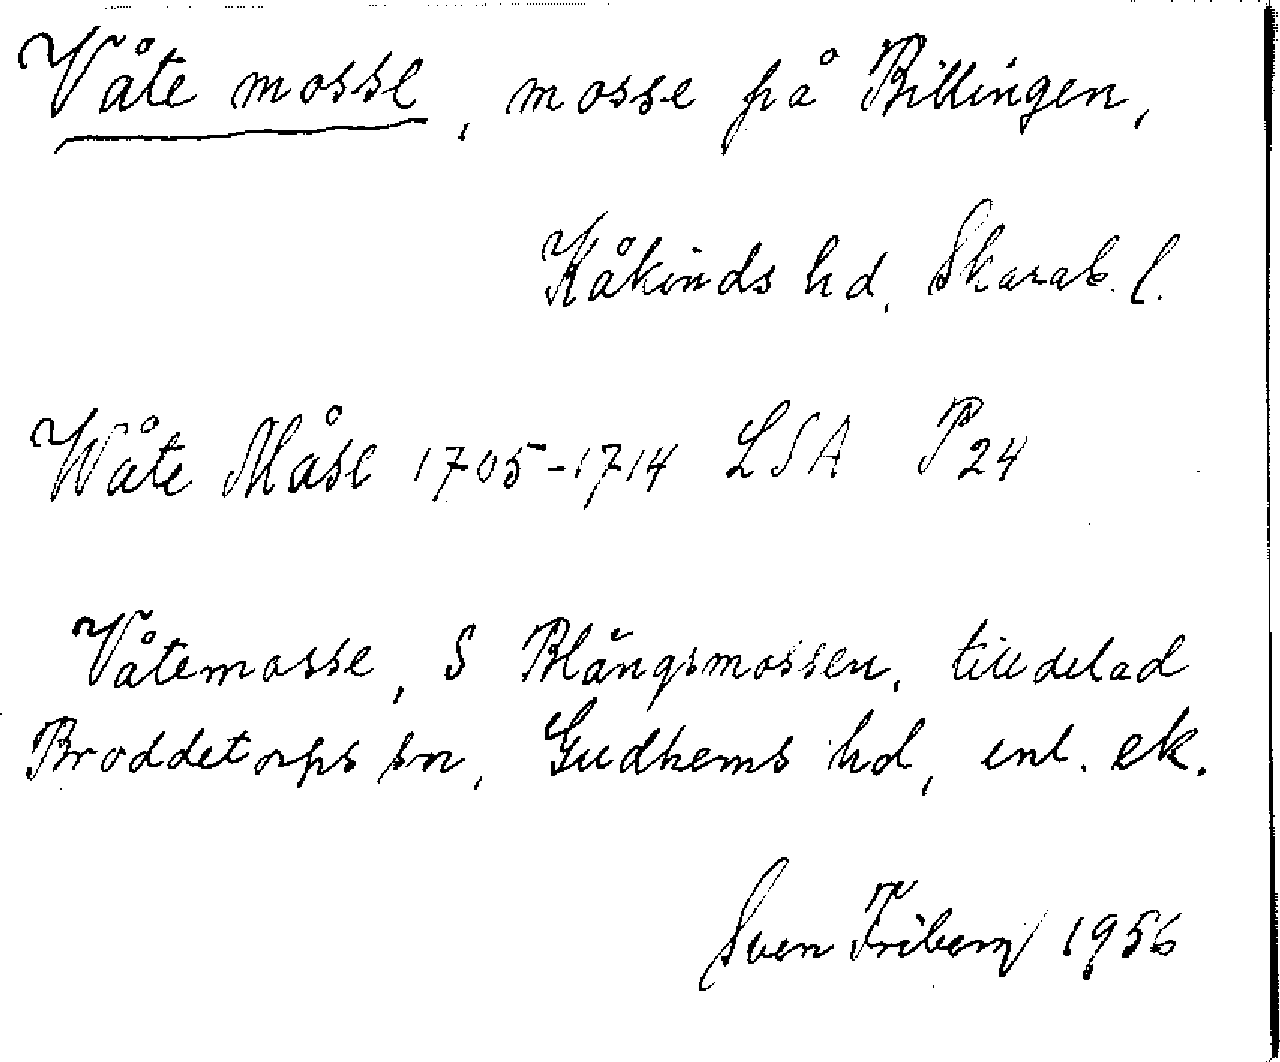 Våte mosse, mosse på Billingen,
Kåkinds hd, Skarab. l.
Wåte Måse 1705-1714 LSA P24
Våtemosse, S Blängsmossen, tilldelad
Broddetorps sn, Gudhems hd, enl. ek.
Sven Friberg 1956